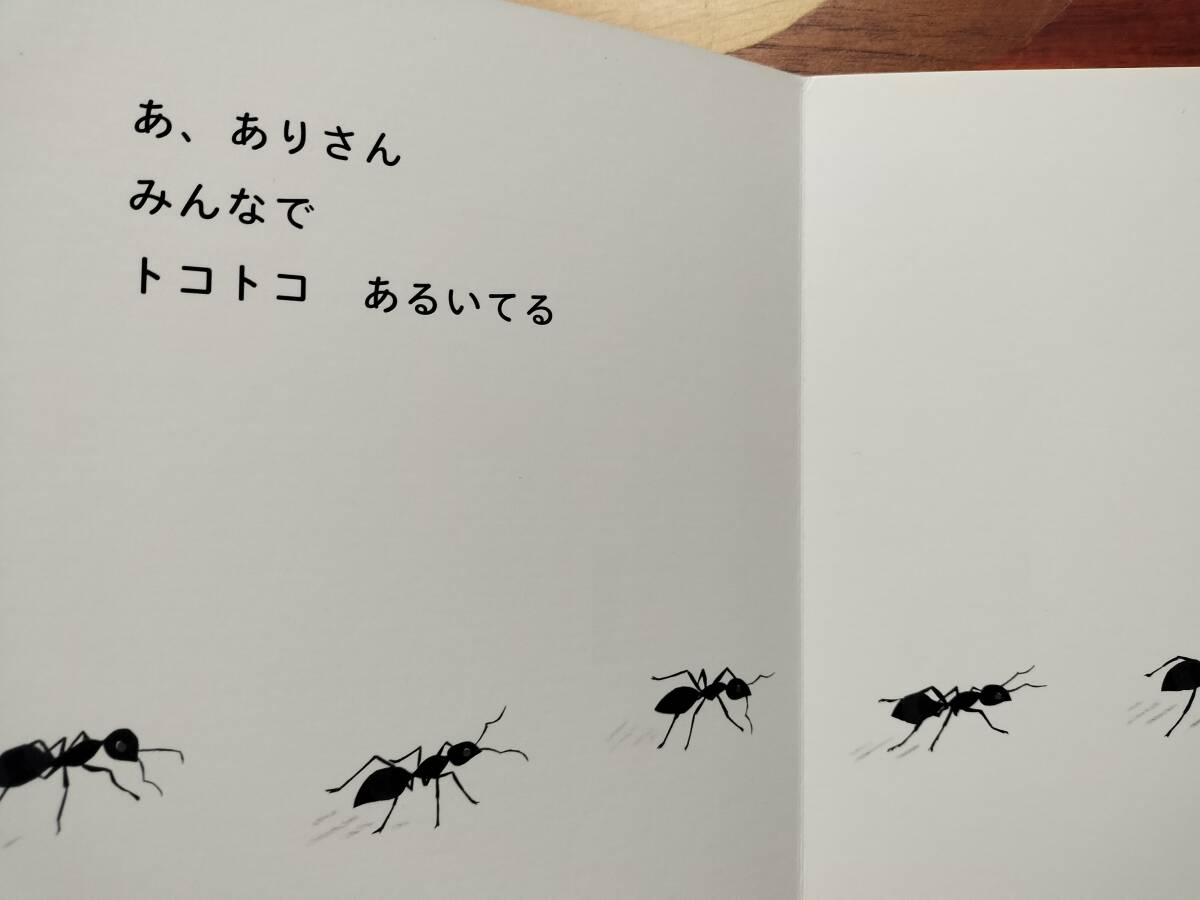 あ、ありさん
みんなで
トコトコ　あるいてる